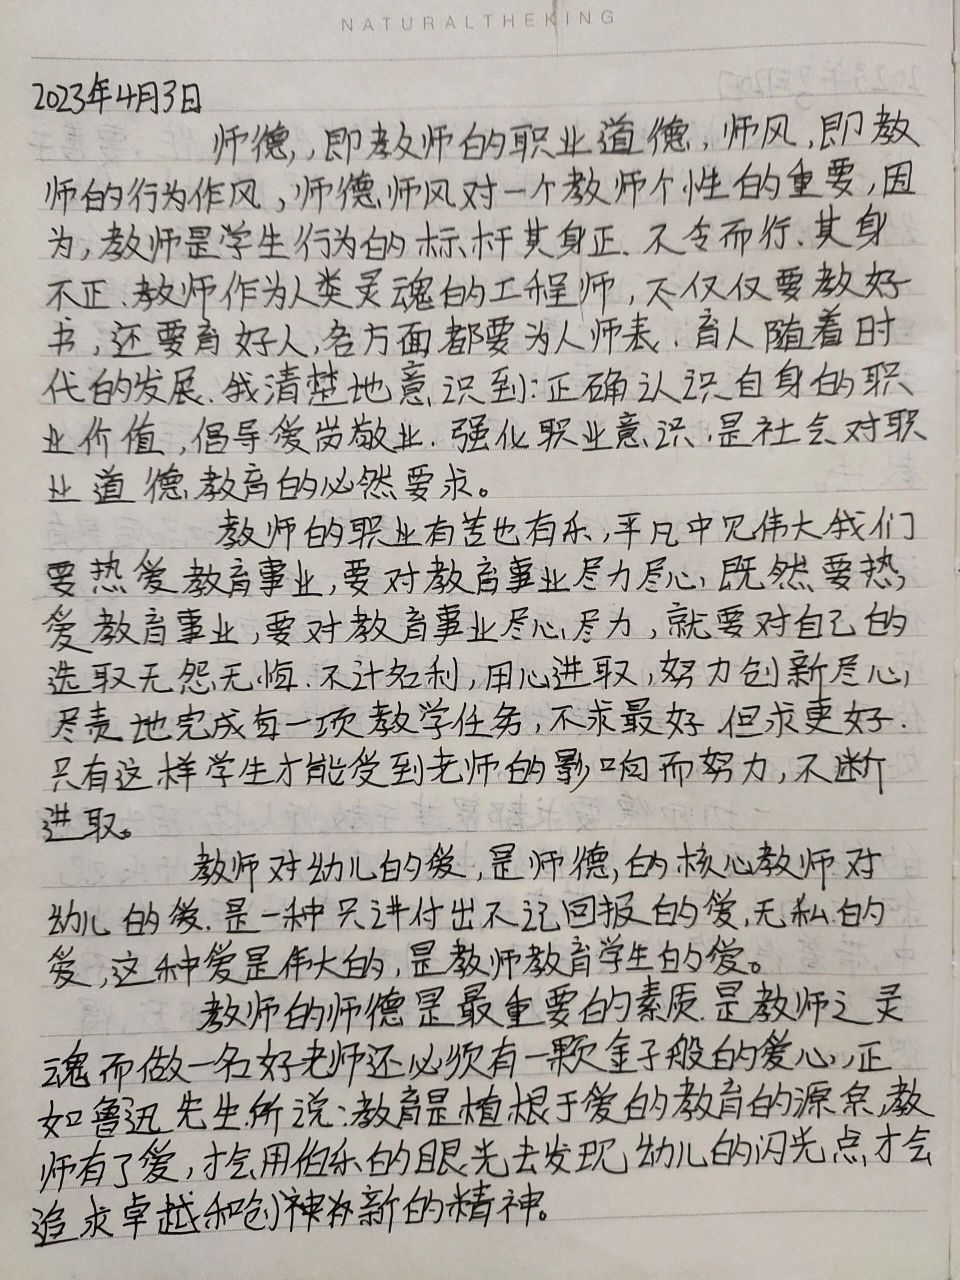 NATURALTHEKING
2023年4月3日
师德,,即教师的职业道德,师风,即教
师的行为作风,师德师风对一个教师个性的重要,因
为,教师是学生行为的标杆其身正.不令而行.其身
不正.教师作为人类灵魂的工程师,不仅仅要教好
书,还要育好人,各方面都要为人师表.育人随着时
代的发展.我清楚地意识到:正确认识自身的职
业价值,倡导爱岗敬业.强化职业意识.是社会对职
业道德教育的必然要求。
教师的职业有苦也有乐,平凡中见伟大我们
要热爱教育事业,要对教育事业尽力尽心,既然要热
爱教育事业,要对教育事业尽心尽力,就要对自己的
选取无怨无悔.不计名利,用心进取,努力创新尽心
尽责地完成每一项教学任务,不求最好.但求更好.
只有这样学生才能受到老师的影响而努力,不断
进取。
教师对幼儿的爱,是师德,的核心教师对
幼儿的爱.是一种只讲付出不记回报的爱,无私的
爱,这种爱是伟大的,是教师教育学生的爱。
教师的师德是最重要的素质.是教师之灵
魂而做一名好老师还必须有一颗金子般的爱心,正
如鲁迅先生所说:教育是植根于爱的教育的源泉,教
师有了爱,才会用伯乐的眼光去发现幼儿的闪光点,才会
追求卓越和创神新的精神。